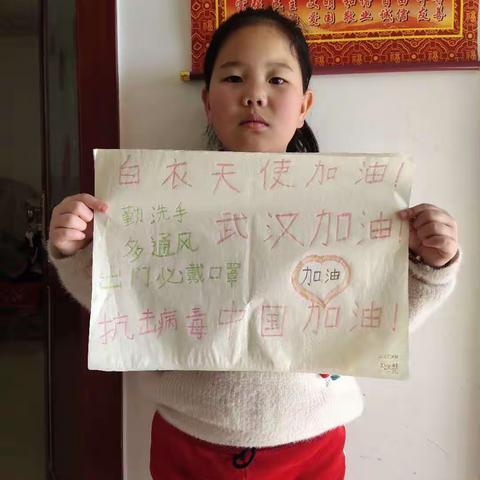 白衣天使加油!
勤洗手
武汉加油!
多通风
出门必戴口罩
加油
抗击病毒中国加油!
爱国敬业诚信友善